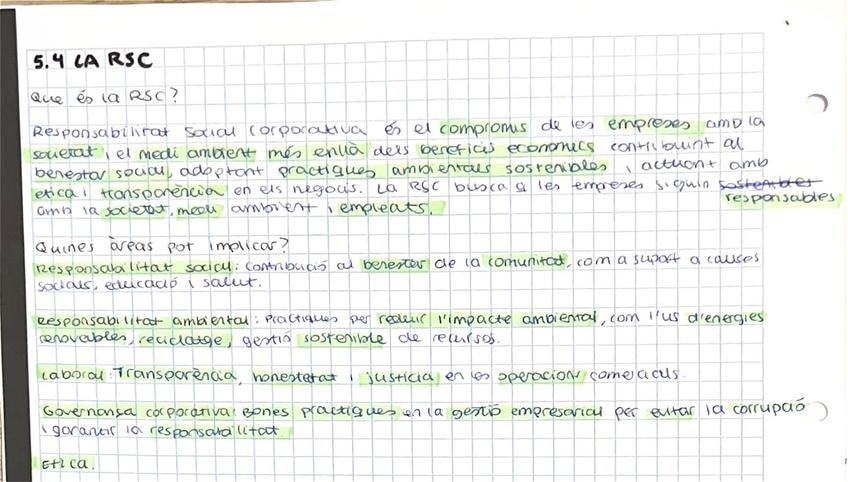 5.4 LA RSC
Que és la RSC?
Responsabilitat Social Corporativa és el compromis de les empreses amb la
societat i el medi ambient més enllà dels beneficis economics contribuint al
benestar social, adoptant practiques ambientals sostenibles i actuant amb
etica i transparència en els negocis. La RSC busca q les empreses siguin sostenibles
responsables
amb la societat, medi ambient i empleats.
Quines àreas pot implicar?
Responsabilitat social: Contribució al benestar de la comunitat, com a suport a causes
socials, educació i salut.
Responsabilitat ambiental: Practiques per reduir l'impacte ambiental, com l'us d'energies
renovables, reciclatge, gestió sostenible de recursos.
Laboral: Transparència, honestetat i justicia en les operacions comercials.
Governansa corporativa: Bones practiques en la gestió empresarial per evitar la corrupció
i garantir la responsabilitat.
Etica.